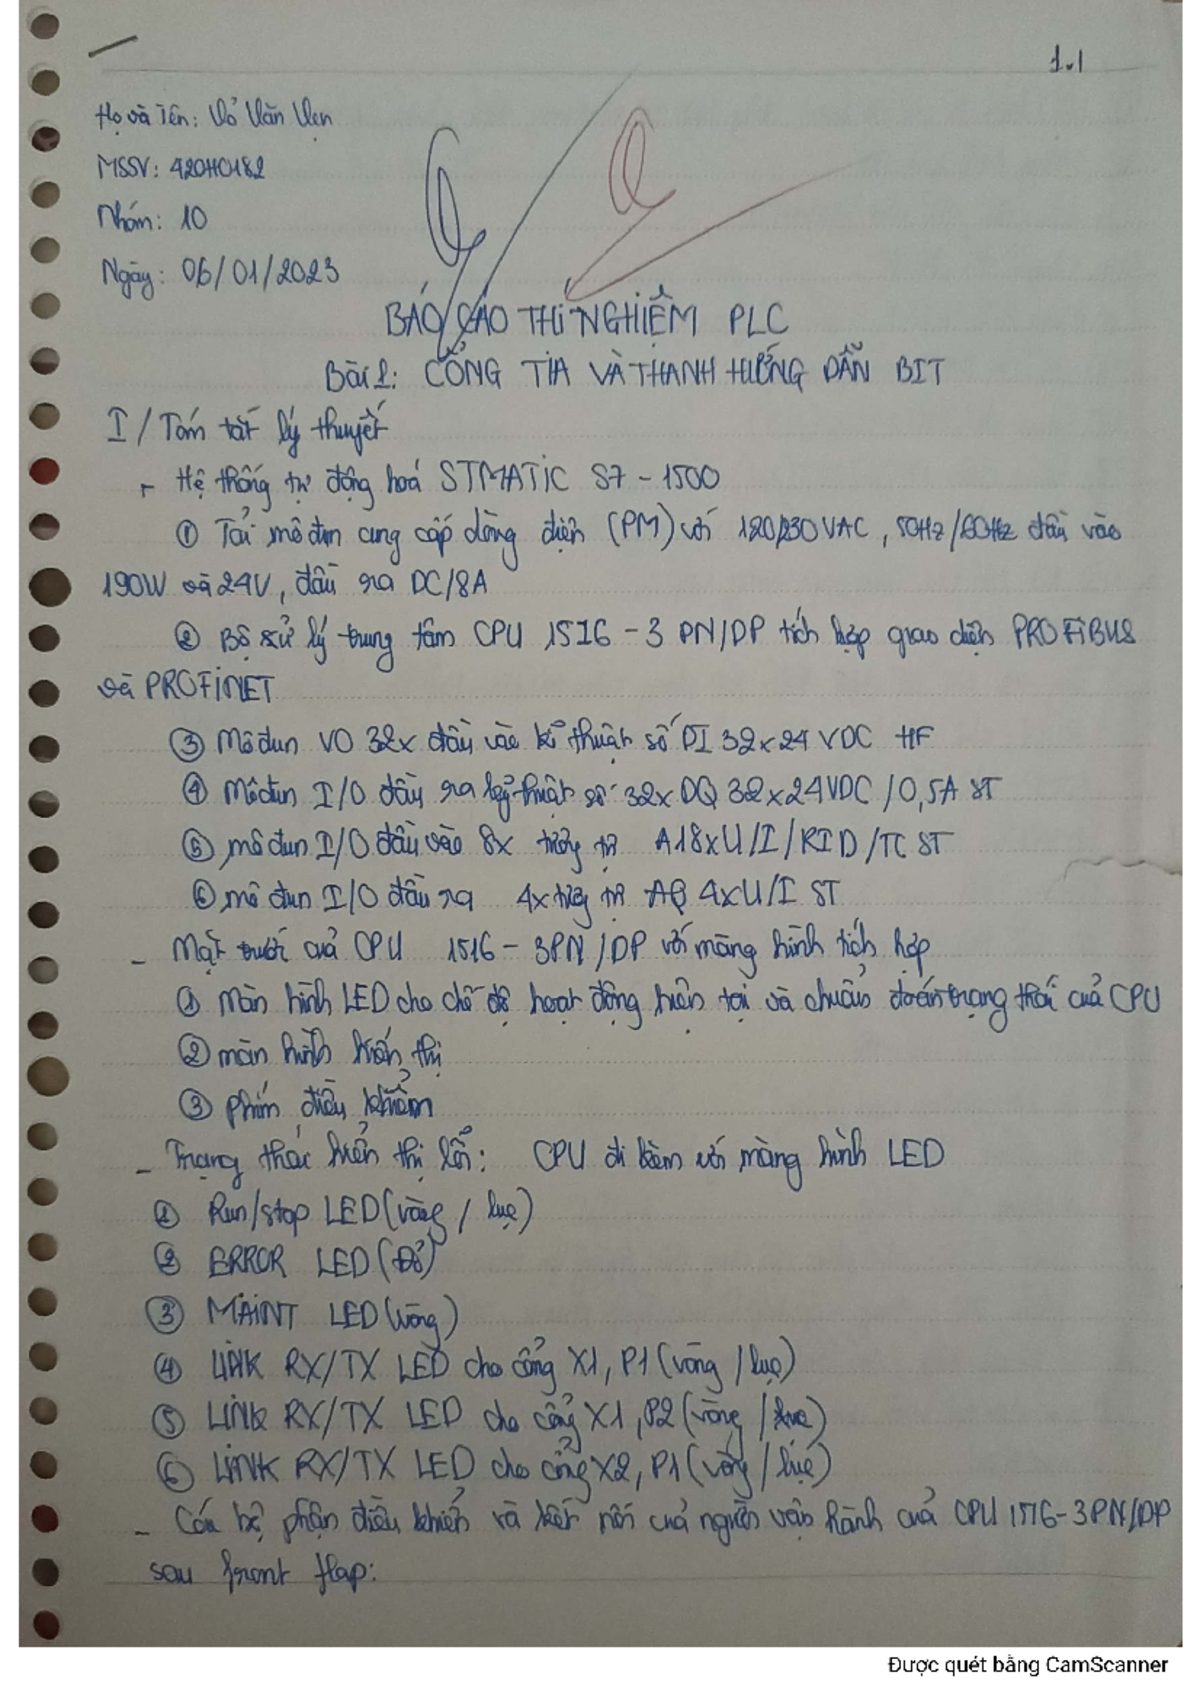 1.1
Họ và Tên: Võ Văn Vẹn
MSSV: 420H0182
Nhóm: 10
Ngày: 06/01/2023
BÁO CÁO THÍ NGHIỆM PLC
Bài 1: CỔNG TIA VÀ THANH HƯỚNG DẪN BIT
I/ Tóm tắt lý thuyết
- Hệ thống tự động hoá STMATIC S7 - 1500
① Tải mô đun cung cấp dòng điện (PM) với 120/230VAC, 50Hz/60Hz đầu vào
190W và 24V, đầu ra DC/8A
② Bộ xử lý trung tâm CPU 1516 - 3 PN/DP tích hợp giao diện PROFIBUS
và PROFINET
③ Môđun VO 32x đầu vào kĩ thuật số DI 32x24 VDC HF
④ Môđun I/O đầu ra kỹ thuật số 32x DQ 32x24VDC /0,5A ST
⑤ mô đun I/O đầu vào 8x tương tự AI8xU/I/RID/TC ST
⑥ mô đun I/O đầu ra 4x tương tự AQ 4xU/I ST
- Mặt trước cuả CPU 1516 - 3PN/DP với màng hình tích hợp
① Màn hình LED cho chế độ hoạt động hiện tại và chuẩn đoán trạng thái cuả CPU
② màn hình hiển thị
③ phím điều khiểm
- Trạng thái hiển thị lỗi: CPU đi kèm với màng hình LED
① Run/stop LED (vàng / lục)
② ERROR LED (Đỏ)
③ MAINT LED (vàng)
④ LINK RX/TX LED cho cổng X1, P1 (vàng / lục)
⑤ LINK RX/TX LED cho cổng X1, P2 (vàng / lục)
⑥ LINK RX/TX LED cho cổng X2, P1 (vàng / lục)
- Các bộ phận điều khiển và kết nối cuả người vận hành cuả CPU 1516-3PN/DP
sau front flap:
Được quét bằng CamScanner